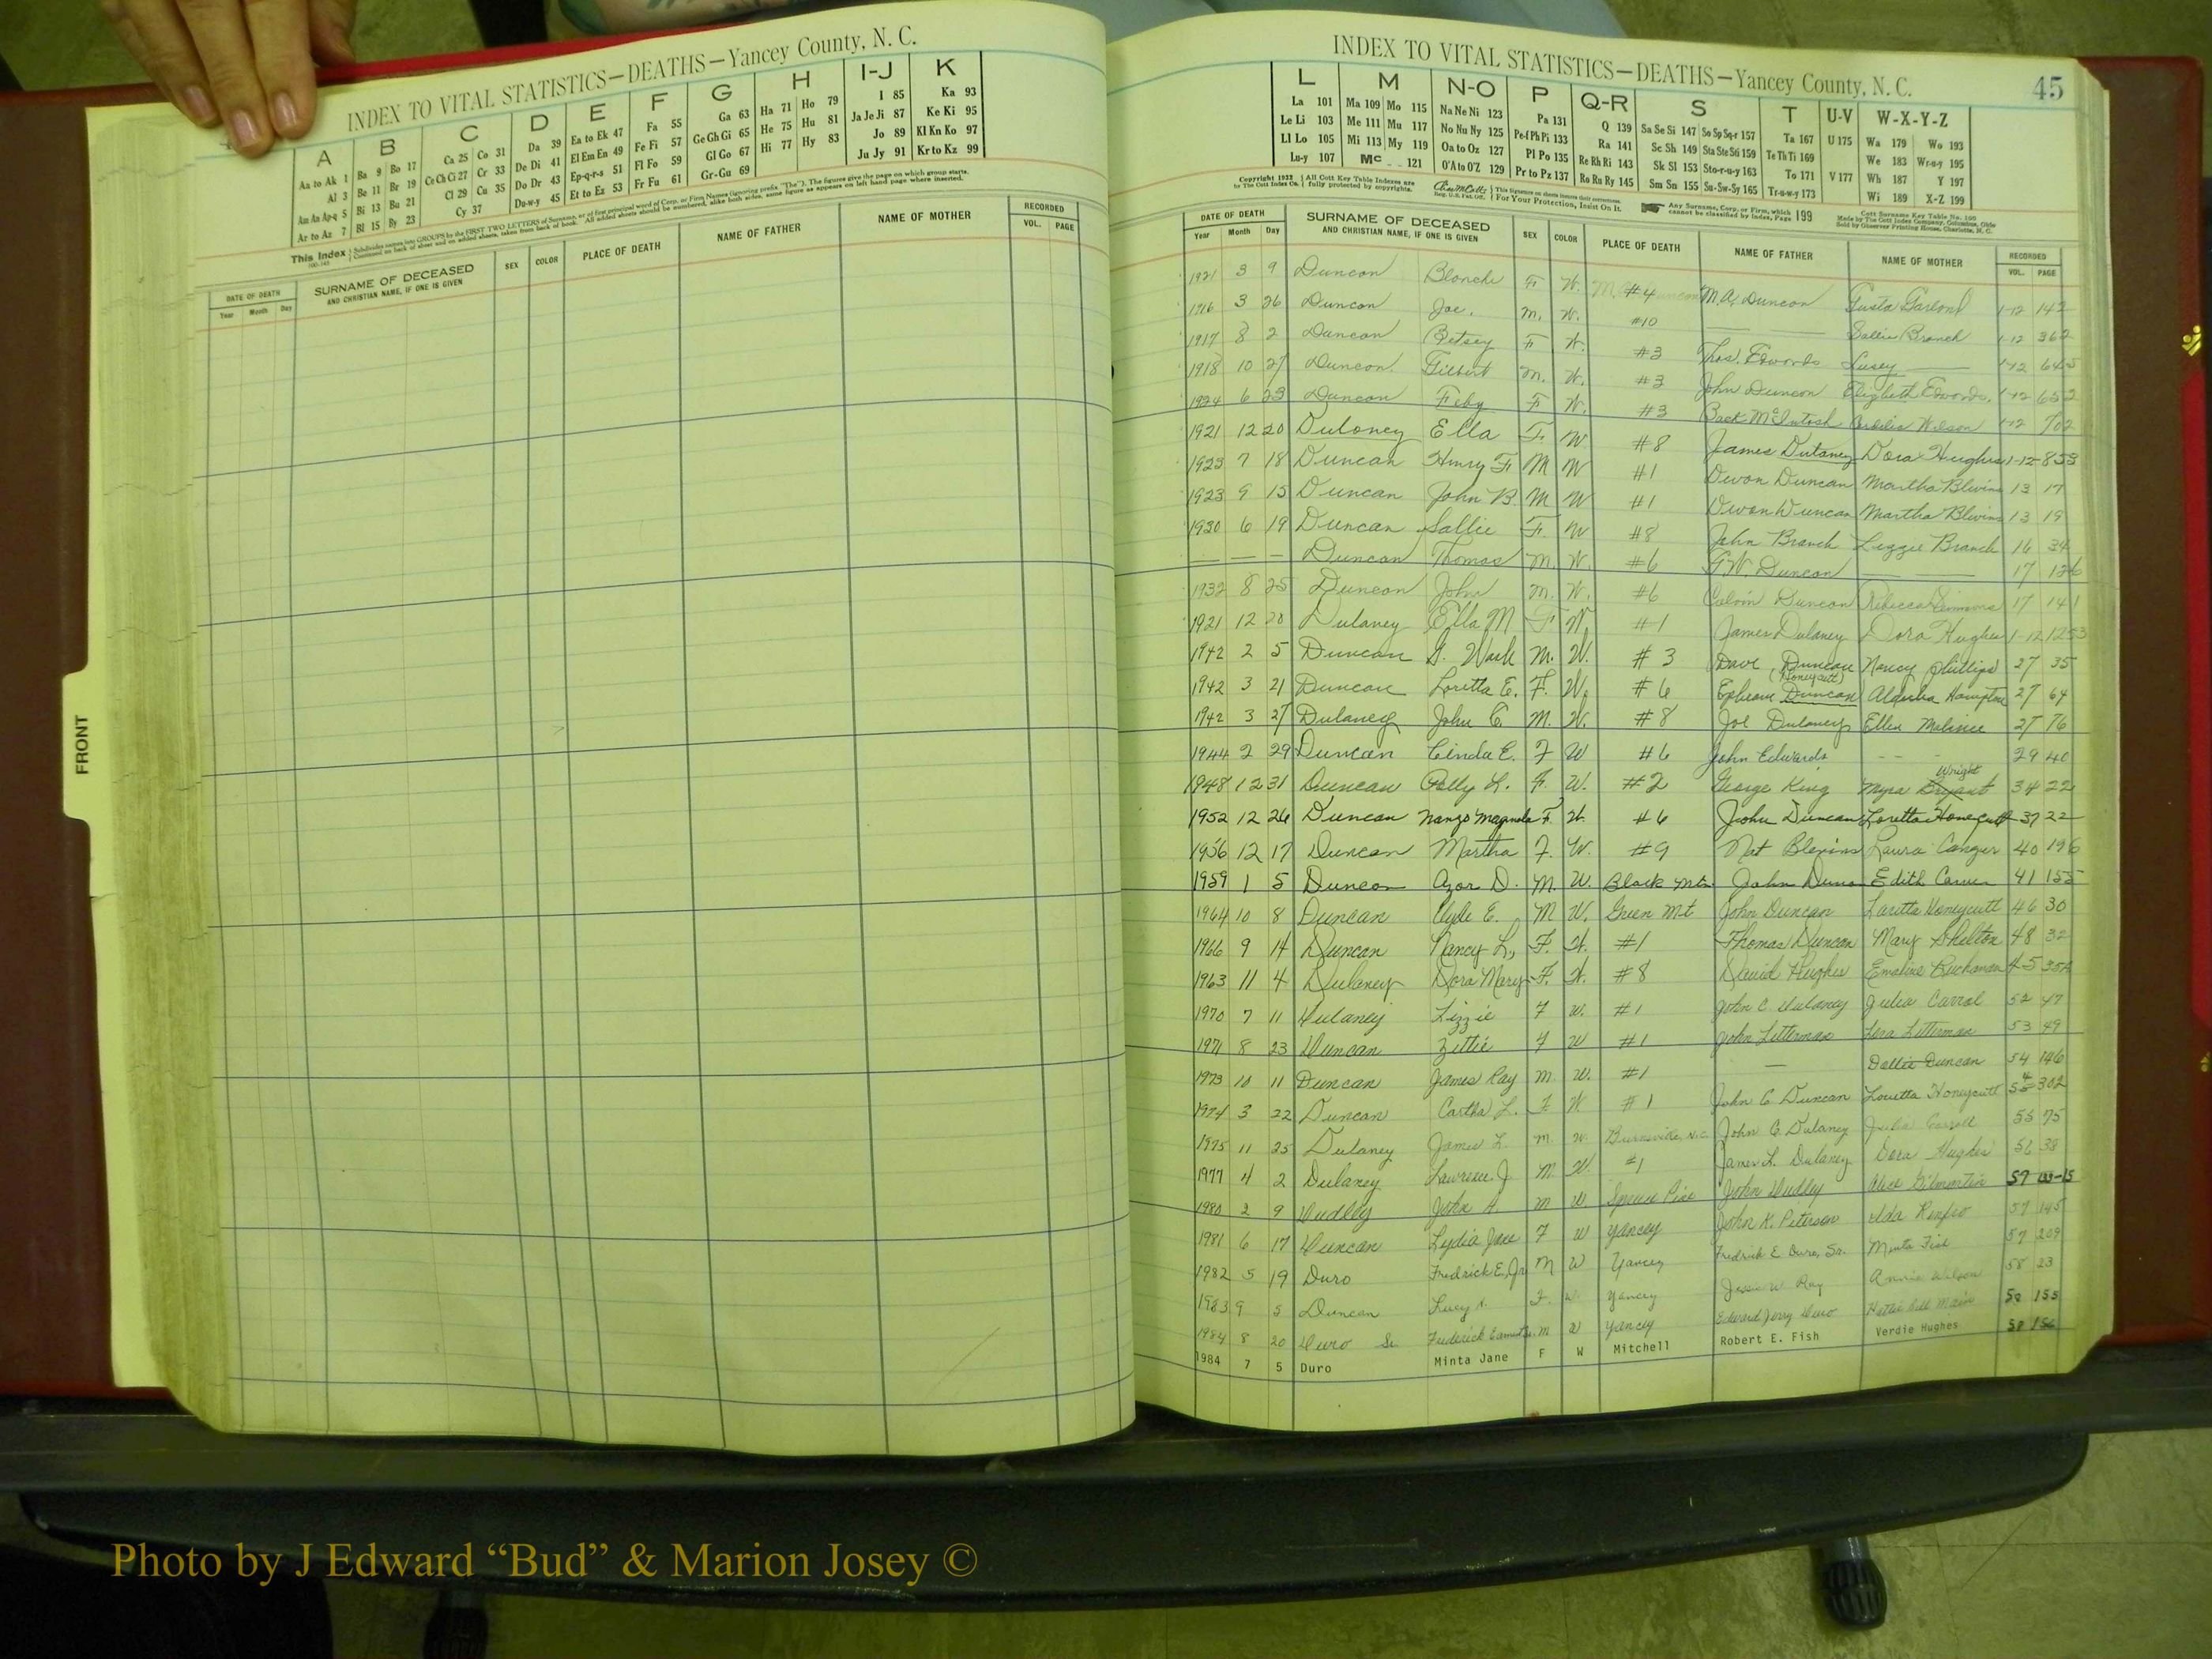 INDEX TO VITAL STATISTICS—DEATHS—Yancey County, N. C.
A B C D E F G H I-J K
Aa to Ak 1 Ba 9 Bo 17 Ca 25 Co 31 Da 39 Ea to Ek 47 Fa 55 Ga 63 Ha 71 Ho 79 I 85 Ka 93
Al 3 Be 11 Br 19 Ce Ch Ci 27 Cr 33 De Di 41 El Em En 49 Fe Fi 57 Ge Gh Gi 65 He 75 Hu 81 Ja Je Ji 87 Ke Ki 95
Am An Ap-q 5 Bi 13 Bu 21 Cl 29 Cu 35 Do Dr 43 Ep-q-r-s 51 Fl Fo 59 Gl Go 67 Hi 77 Hy 83 Jo 89 Kl Kn Ko 97
Ar to Az 7 Bl 15 By 23 Cy 37 Du-w-y 45 Et to Ez 53 Fr Fu 61 Gr-Gu 69 Ju Jy 91 Kr to Kz 99
This Index
DATE OF DEATH SURNAME OF DECEASED SEX COLOR PLACE OF DEATH NAME OF FATHER NAME OF MOTHER RECORDED
Year Month Day AND CHRISTIAN NAME, IF ONE IS GIVEN VOL. PAGE
FRONT
INDEX TO VITAL STATISTICS—DEATHS—Yancey County, N. C. 45
L M N-O P Q-R S T U-V W-X-Y-Z
La 101 Ma 109 Mo 115 Na Ne Ni 123 Pa 131 Q 139 Sa Se Si 147 So Sp Sq-r 157 Ta 167 U 175 Wa 179 Wo 193
Le Li 103 Me 111 Mu 117 No Nu Ny 125 Pe-f Ph Pi 133 Ra 141 Sc Sh 149 Sta Ste Sti 159 Te Th Ti 169 We 183 Wr-u-y 195
Ll Lo 105 Mi 113 My 119 Oa to Oz 127 Pl Po 135 Re Rh Ri 143 Sk Sl 153 Sto-r-u-y 163 To 171 V 177 Wh 187 Y 197
Lu-y 107 Mc 121 O'A to O'Z 129 Pr to Pz 137 Ro Ru Ry 145 Sm Sn 155 Su-Sw-Sy 165 Tr-u-w-y 173 Wi 189 X-Z 199
Copyright 1932 by The Cott Index Co. All Cott Key Table Indexes are fully protected by copyrights. For Your Protection, Insist On It. Any Surname, Corp. or Firm, which cannot be classified by Index, Page 199
DATE OF DEATH SURNAME OF DECEASED SEX COLOR PLACE OF DEATH NAME OF FATHER NAME OF MOTHER RECORDED
Year Month Day AND CHRISTIAN NAME, IF ONE IS GIVEN VOL. PAGE
1921 3 9 Duncan Blanche F W. #4 M.A. Duncan Gusta Garland 1-12 142
1916 3 26 Duncan Joe. M. W. #10 Sallie Branch 1-12 362
1917 8 2 Duncan Betsey F W. #3 Thos. Edwards Lusey 1-12 645
1918 10 27 Duncan Gilbert M. W. #3 John Duncan Elizbeth Edwards 1-12 652
1924 6 23 Duncan Feby F W. #3 McIntosh Wilson 1-12 702
1921 12 20 Dulaney Ella F. W #8 James Dulaney Dora Hughes 1-12 853
1923 7 18 Duncan Henry F M W #1 Devon Duncan Martha Blivins 13 17
1923 9 15 Duncan John B. M W #1 Devon Duncan Martha Blivins 13 19
1930 6 19 Duncan Sallie F. W #8 John Branch Lizzie Branch 16 34
— — — Duncan Thomas M. W. #6 G.W. Duncan 17 126
1932 8 25 Duncan John M. W. #6 Calvin Duncan Rebecca 17 141
1921 12 20 Dulaney Ella M F W. #1 James Dulaney Dora Hughes 1-12 1253
1942 2 5 Duncan G. M. W. #3 Dave Duncan Nancy Phillips 27 35
1942 3 21 Duncan Loretta E. F. W. #6 Ephram Duncan (Honeycutt) Hampton 27 64
1942 3 27 Dulaney John C. M. W. #8 Joe Dulaney Ellen 27 76
1944 2 29 Duncan Cinda E. F W #6 John Edwards - - 29 40
1948 12 31 Duncan Polly L. F. W. #2 George King Myra Bryant Wright 34 22
1952 12 26 Duncan Magnola F. W. #6 John Duncan Loretta Honeycutt 37 22
1956 12 17 Duncan Martha F. W. #9 Nat Blevins Laura Conger 40 196
1959 1 5 Duncan Azor D. M. W. Black Mtn. John Duncan Edith Carver 41 155
1964 10 8 Duncan Clyde E. M W. Green Mt. John Duncan Laretta Honeycutt 46 30
1966 9 14 Duncan Nancy L. F. W. #1 Thomas Duncan Mary Shelton 48 32
1963 11 4 Dulaney Dora Mary F. W. #8 David Hughes Emaline Buchanan 45 35A
1970 7 11 Dulaney Lizzie F W. #1 John C. Dulaney Julia Carrol 52 47
1971 8 23 Duncan Zettie F W #1 John Letterman Lora Letterman 53 49
1973 10 11 Duncan James Ray M W. #1 — Dallie Duncan 54 146
1974 3 22 Duncan Cartha L. F W #1 John C Duncan Louetta Honeycutt 302
1975 11 25 Dulaney James L. M W. Burnsville, N.C. John C. Dulaney Julia Carroll 55 75
1977 4 2 Dulaney Lawrence J. M W. #1 James L. Dulaney Dora Hughes 56 38
1980 2 9 Dudley John A. M W Spruce Pine John Dudley Alice 57
1981 6 17 Duncan Lydia Jane F W Yancey John K. Peterson Ida Renfro 57 145
1982 5 19 Duro Fredrick E. Jr M W Yancey Fredrick E. Duro, Sr. Minta Fish 57 209
1983 9 5 Duncan Lucy F. W Yancey Jessie W Ray Annie Wilson 58 23
1984 8 20 Duro Sr M W Yancey Edward Jerry Duro Hattie Bell 58 155
1984 7 5 Duro Minta Jane F W Mitchell Robert E. Fish Verdie Hughes 58 156
Photo by J Edward “Bud” & Marion Josey ©